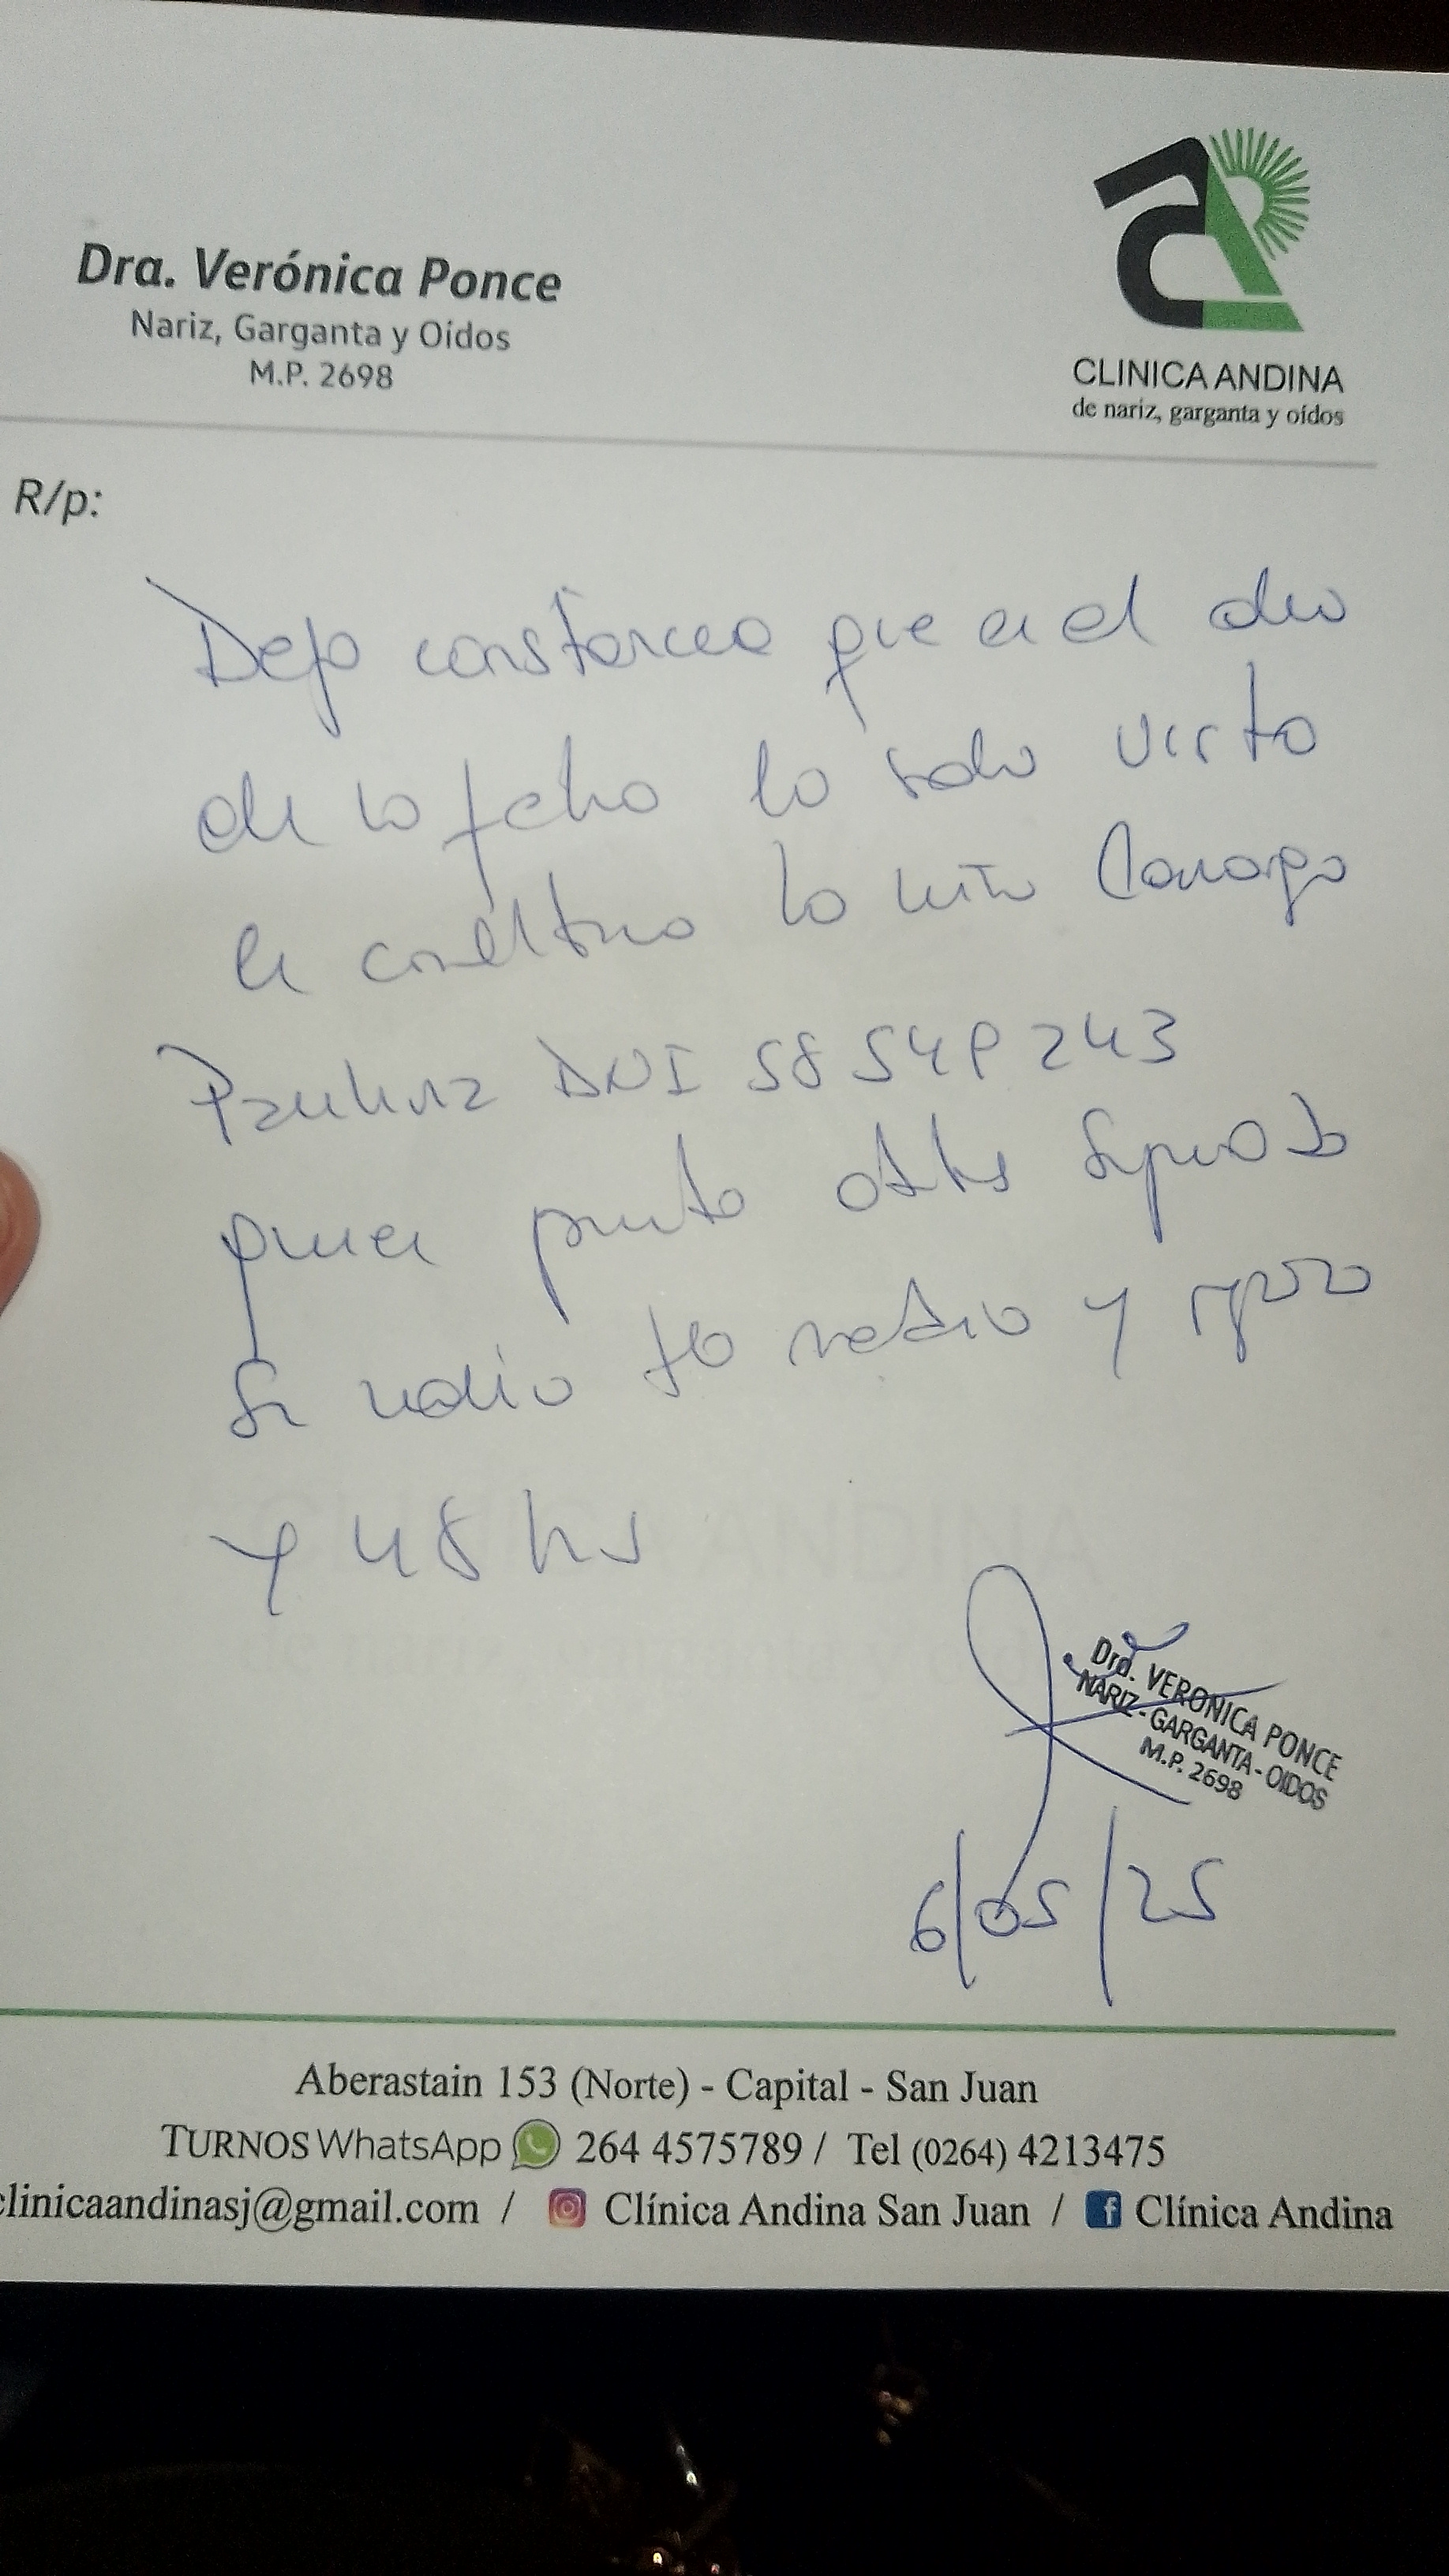 Dra. Verónica Ponce
Nariz, Garganta y Oídos
M.P. 2698
CLINICA ANDINA
de nariz, garganta y oídos
R/p:
Dejo constancia que en el día
de la fecha ha sido visto
en consultorio la niña
Paulina DNI 58 549 243
quien otitis
media tto medico y reposo
x 48 hs
Dra. VERONICA PONCE
NARIZ - GARGANTA - OIDOS
M.P. 2698
6/05/25
Aberastain 153 (Norte) - Capital - San Juan
TURNOS WhatsApp 264 4575789 / Tel (0264) 4213475
clinicaandinasj@gmail.com / Clínica Andina San Juan / Clínica Andina